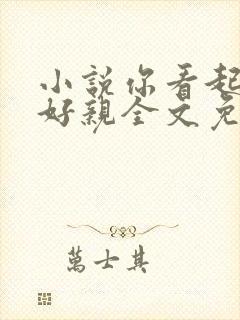 小説你看起
好親全文免
萬士其